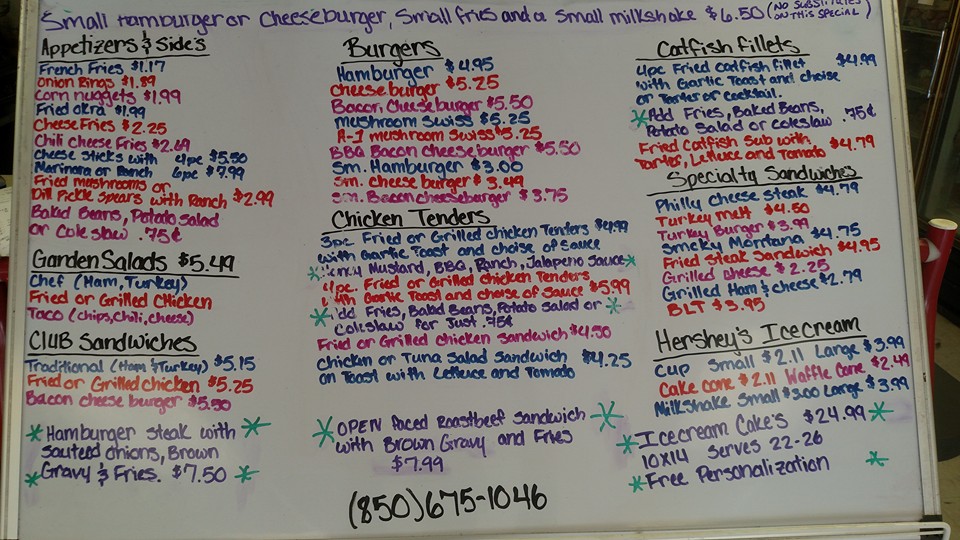 Small Hamburger or Cheeseburger, Small fries and a small milkshake $6.50 (NO SUBSTITUTES ON THIS SPECIAL)
Appetizers & Side's
French Fries $1.17
Onion Rings $1.89
Corn nuggets $1.99
Fried okra $1.99
Cheese Fries $2.25
Chili cheese Fries $2.69
Cheese Sticks with 4pc $5.50
Marinara or Ranch 6pc $7.99
Fried mushrooms or
Dill Pickle Spears with Ranch $2.99
Baked Beans, Potato Salad
or Cole slaw .75¢
Garden Salads $5.49
Chef (Ham, Turkey)
Fried or Grilled Chicken
Taco (chips, chili, cheese)
Club Sandwiches
Traditional (Ham & Turkey) $5.15
Fried or Grilled chicken $5.25
Bacon cheese burger $5.50
Hamburger steak with
sauteed onions, Brown
Gravy & Fries. $7.50
Burgers
Hamburger $4.95
Cheese burger $5.25
Bacon Cheeseburger $5.50
Mushroom Swiss $5.25
A-1 mushroom Swiss $5.25
BBQ Bacon cheese burger $5.50
Sm. Hamburger $3.00
Sm. cheese burger $3.49
Sm. Bacon cheeseburger $3.75
Chicken Tenders
3pc Fried or Grilled chicken Tenders $4.99
with Garlic Toast and choise of Sauce
Mustard, BBQ, Ranch, Jalapeno Sauce
4pc. Fried or Grilled chicken Tenders
with Garlic Toast and choise of Sauce $5.99
Add Fries, Baked Beans, Potato Salad or
Coleslaw for Just .75¢
Fried or Grilled chicken Sandwich $4.50
Chicken or Tuna Salad Sandwich $4.25
on Toast with Lettuce and Tomato
OPEN Faced Roastbeef Sandwich
with Brown Gravy and Fries
$7.99
(850) 675-1046
Catfish Fillets
4pc Fried catfish fillet $4.99
with Garlic Toast and choise
or Tarter or Cocktail.
Add Fries, Baked Beans, .75¢
Potato Salad or coleslaw
Fried Catfish Sub with $4.79
Tarter, Lettuce and Tomato
Specialty Sandwiches
Philly Cheese Steak $4.79
Turkey melt $4.50
Turkey Burger $3.99
Smoky Montana $4.75
Fried Steak Sandwich $4.95
Grilled cheese $2.25
Grilled Ham & cheese $2.79
BLT $3.95
Hershey's Ice cream
Cup Small $2.11 Large $3.99
Cake cone $2.11 Waffle Cone $2.49
Milkshake Small $3.00 Large $3.99
Icecream Cake's $24.99
10x14 Serves 22-26
Free Personalization